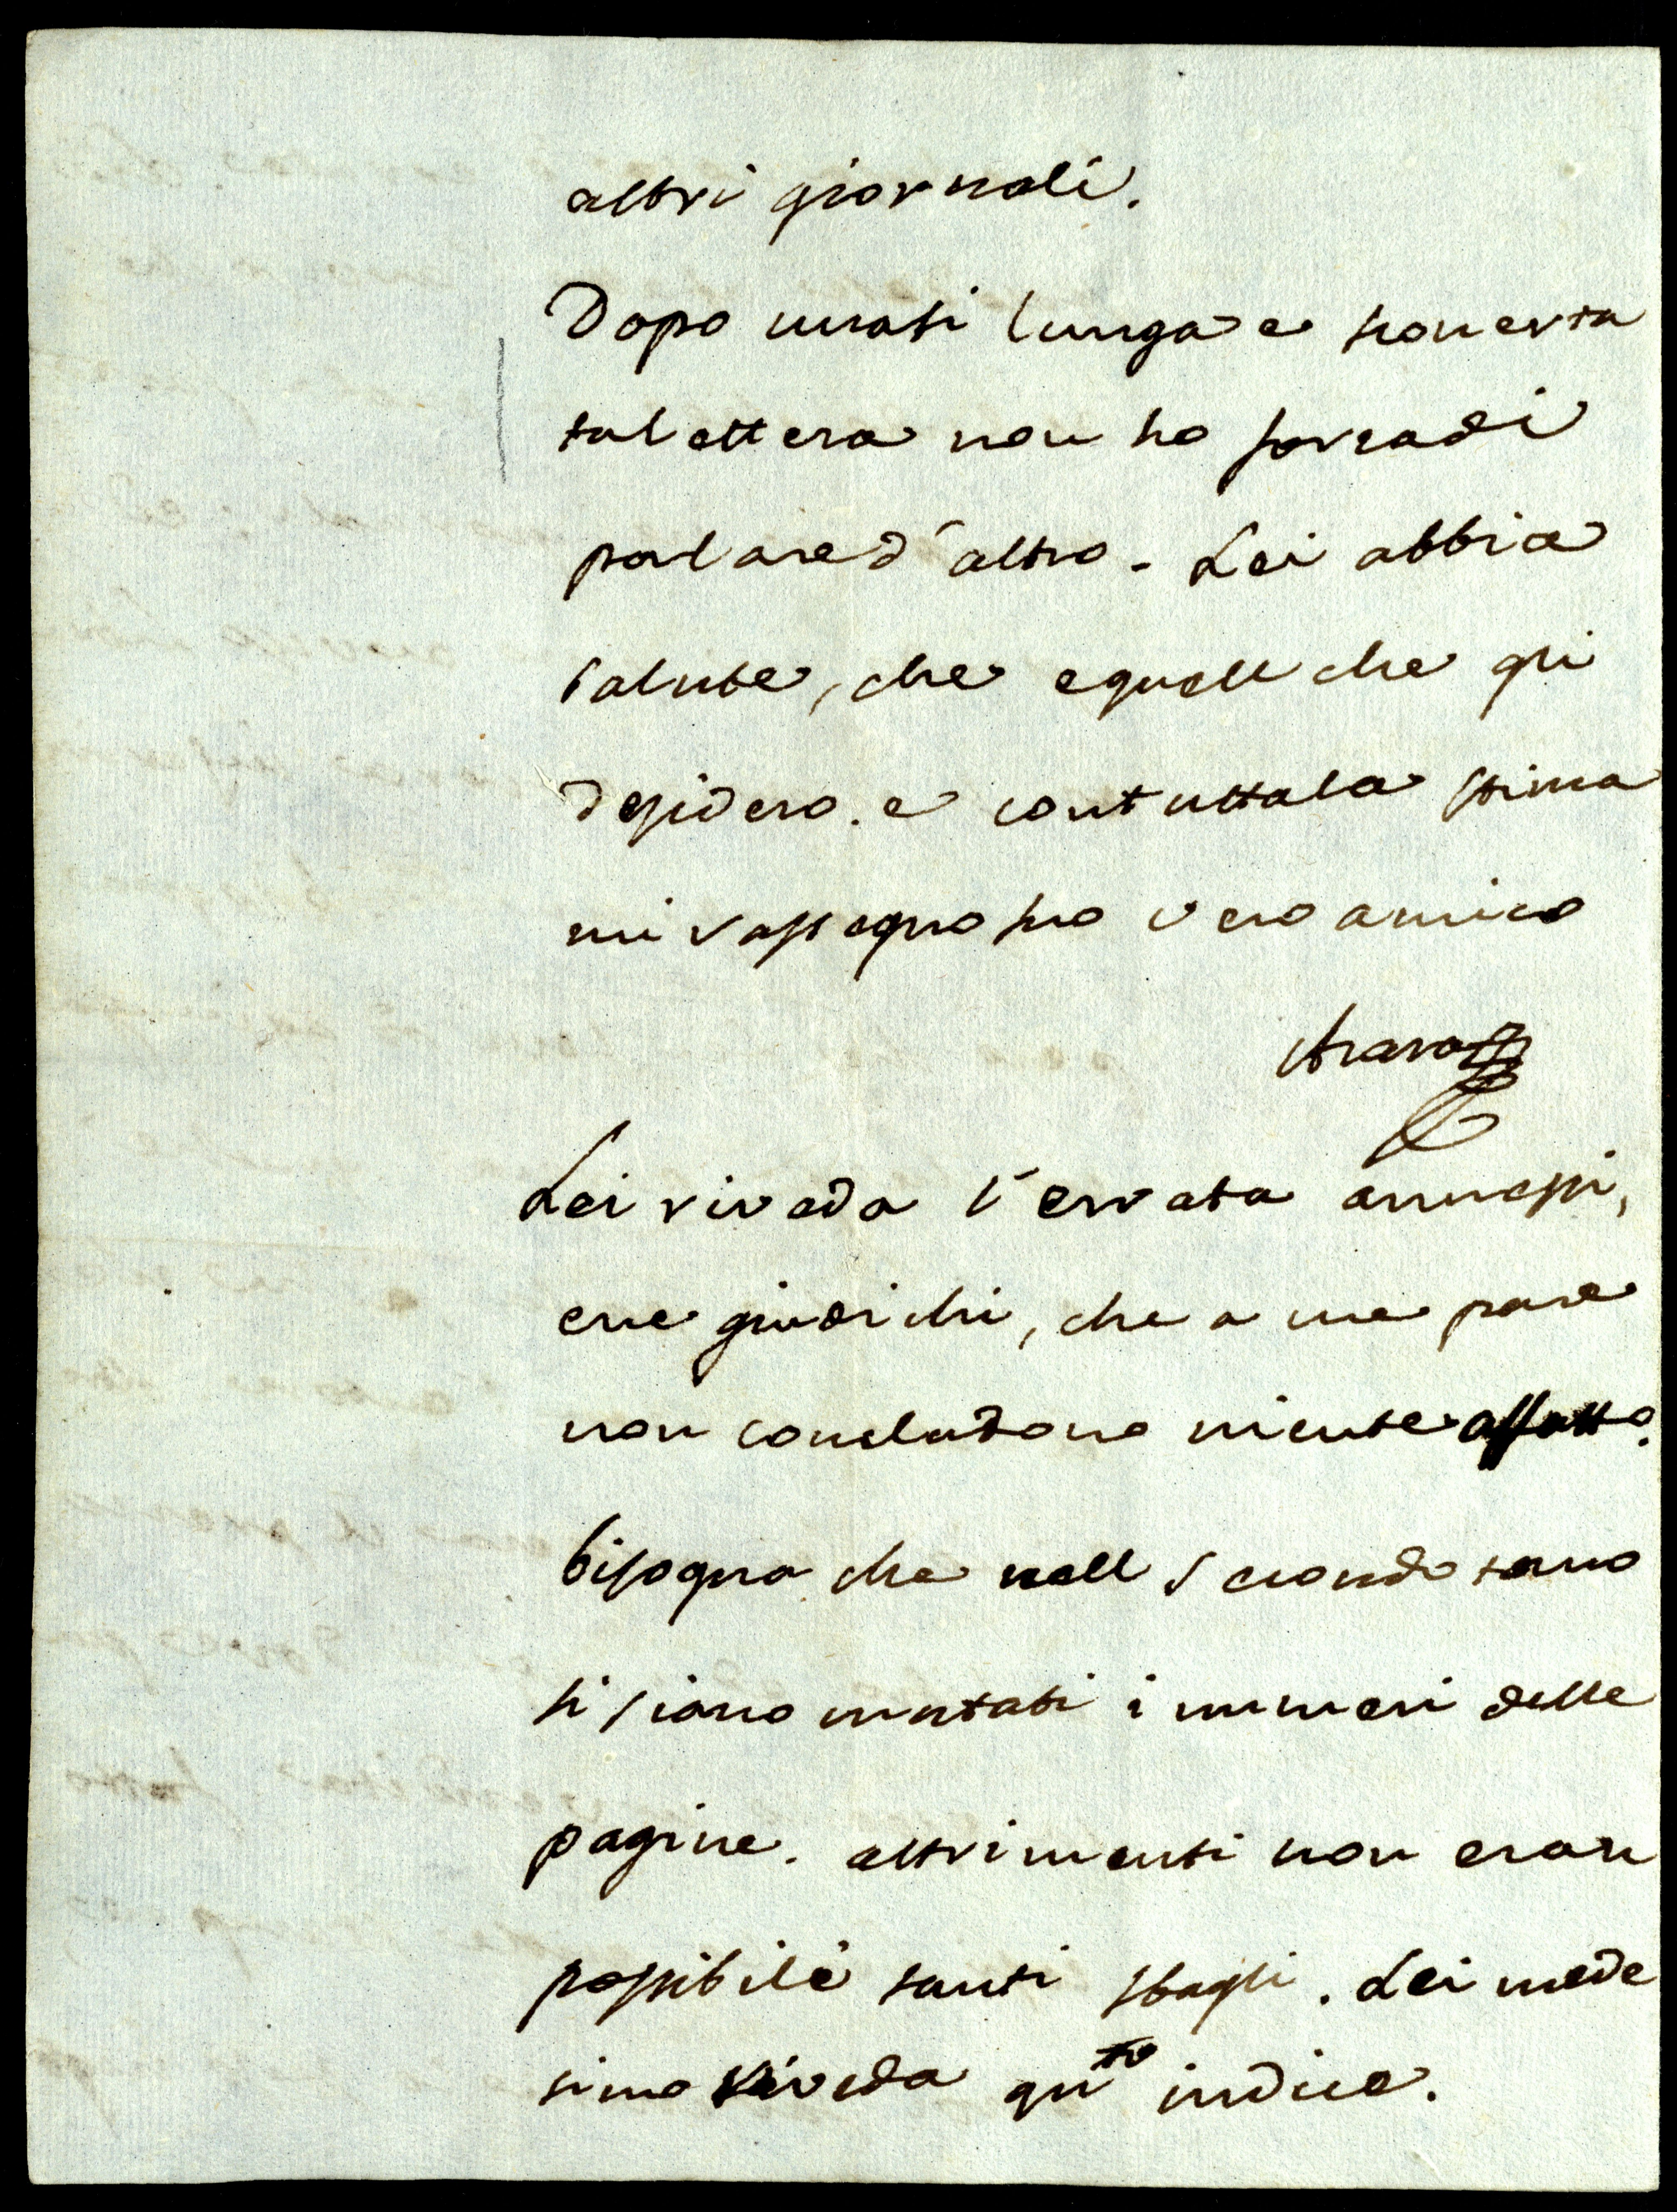 altri giornali.
Dopo una si lunga e sconcerta
ta lettera non ho forza di
parlare d'altro. Lei abbia
salute, che e quell che gli
desidero. e con tutta la stima
mi rassegno suo vero amico
Lei riveda l'errata annessi,
e ne giudichi, che a me pare
non concludono niente affatto.
bisogna che nell secondo tomo
si siano mutati i numeri delle
pagine. altrimenti non eran
possibile tanti sbagli. Lei mede
simo riveda qu.to indice.